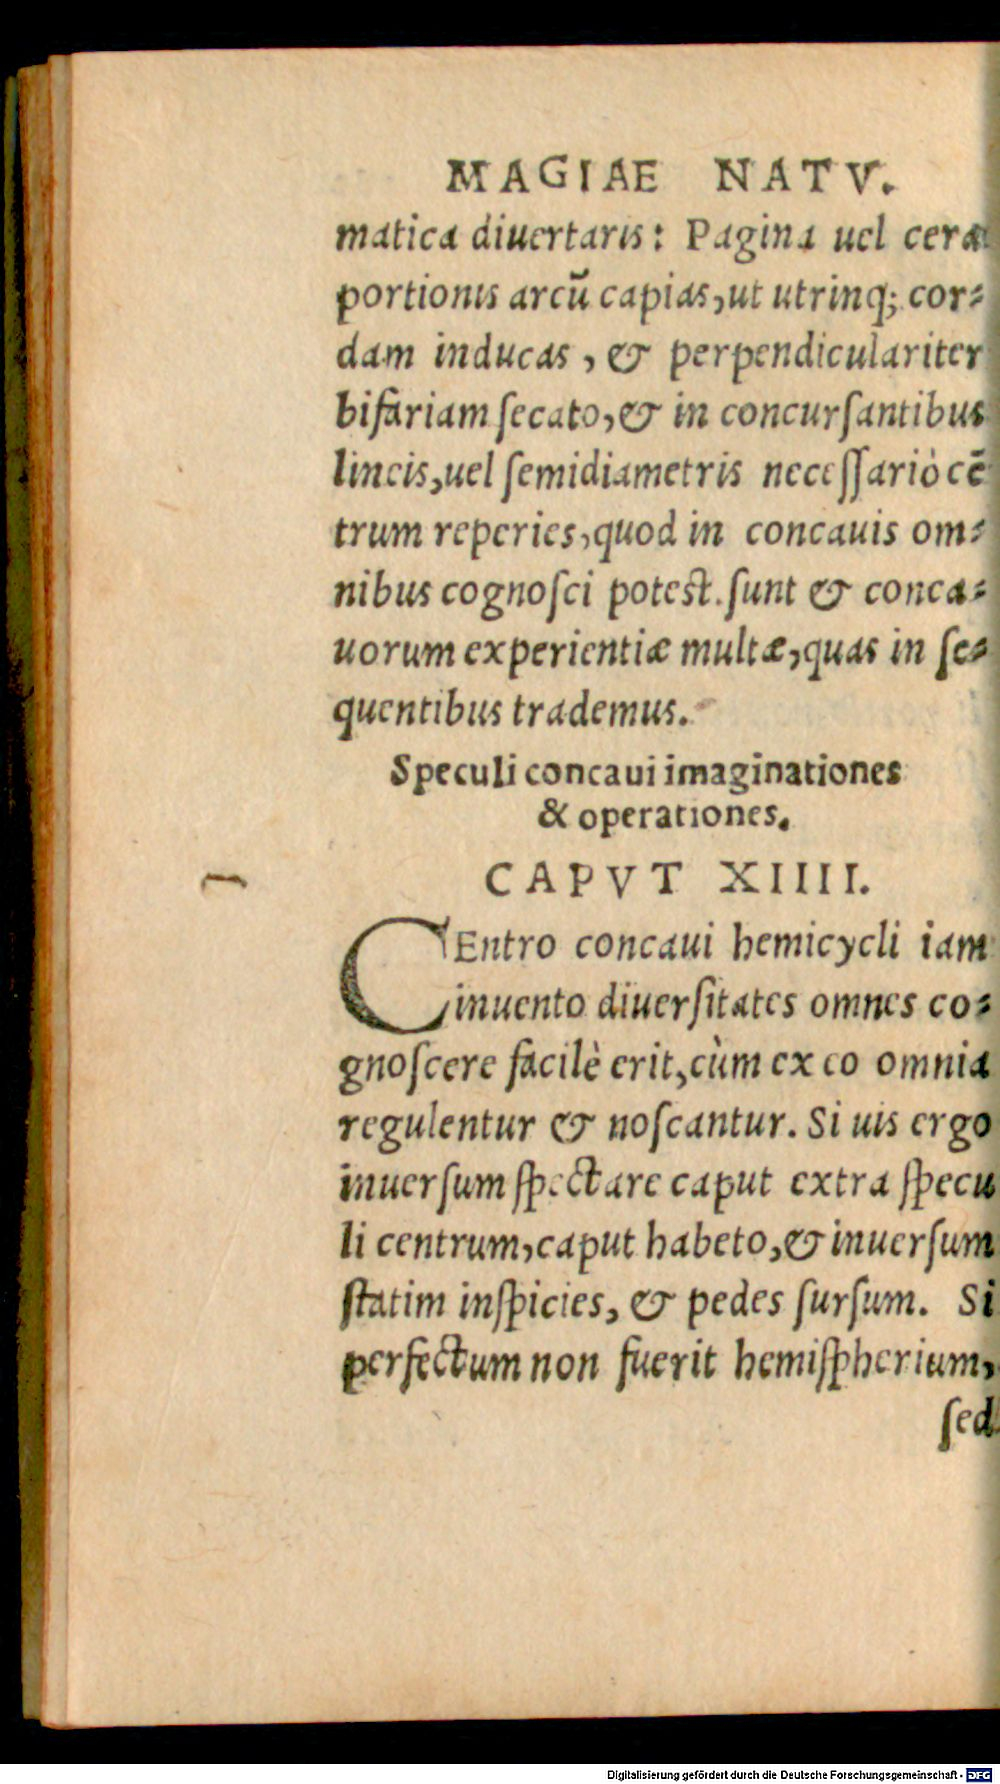 MAGIAE NATV.
matica diuertaris: Pagina uel cera
portionis arcū capias, ut utrinq; cor-
dam inducas, & perpendiculariter
bifariam ſecato, & in concurſantibus
lineis, uel ſemidiametris neceſſariò cē
trum reperies, quod in concauis om-
nibus cognoſci poteſt. ſunt & conca-
uorum experientiæ multæ, quas in ſe-
quentibus trademus.
Speculi concaui imaginationes
& operationes.
CAPVT XIIII.
CEntro concaui hemicycli iam
inuento diuerſitates omnes co-
gnoſcere facilè erit, cùm ex eo omnia
regulentur & noſcantur. Si uis ergo
inuerſum ſpectare caput extra ſpecu
li centrum, caput habeto, & inuerſum
ſtatim inſpicies, & pedes ſurſum. Si
perfectum non fuerit hemiſpherium,
ſed
Digitalisierung gefördert durch die Deutsche Forschungsgemeinschaft - DFG